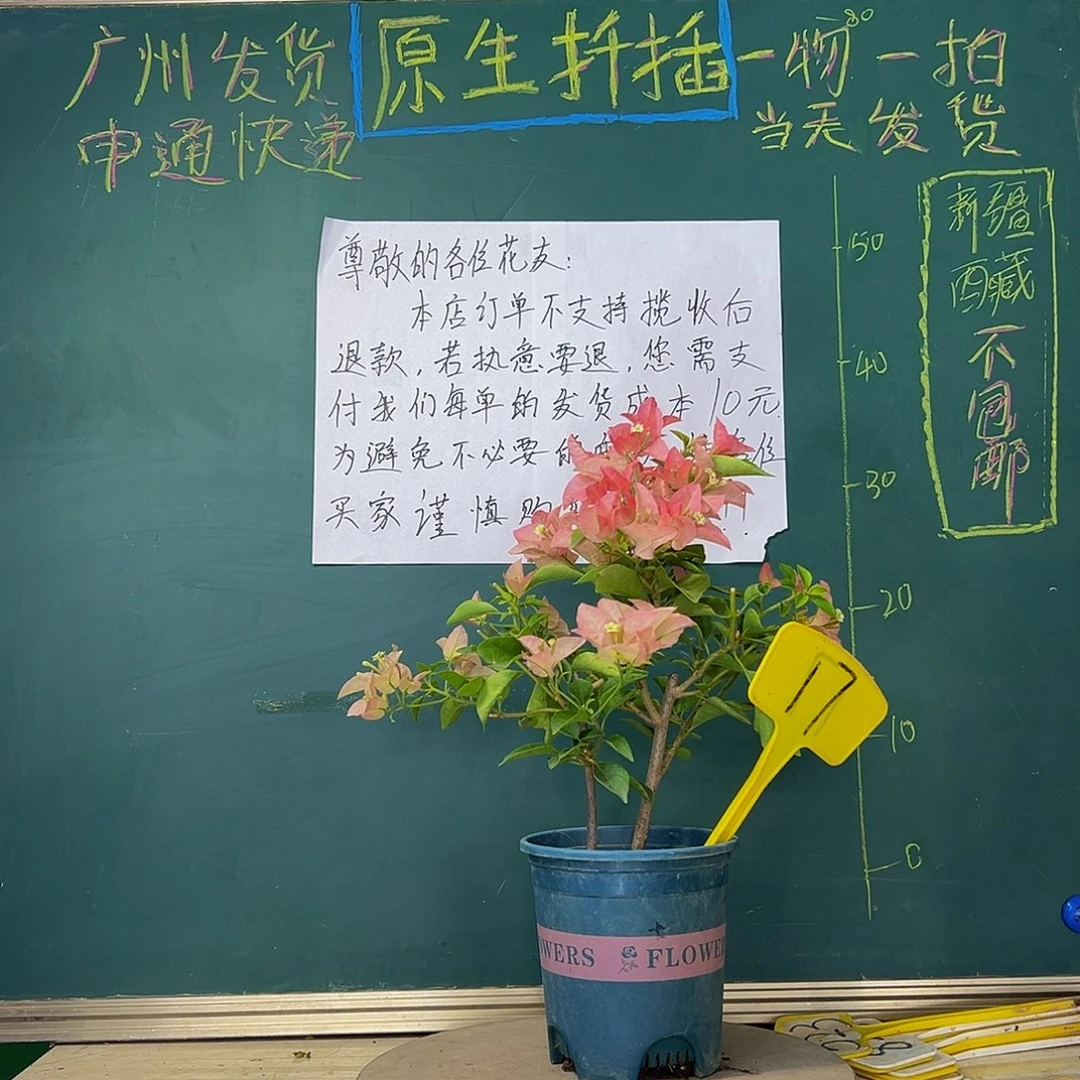 广州发货
原生扦插
一物一拍
80
申通快递
当天发货
新疆
西藏
不包邮
尊敬的各位花友:
本店订单不支持揽收后
退款,若执意要退,您需支
付我们每单的发货成本10元
为避免不必要的
位
买家谨慎购
!
50
40
30
20
10
0
17
WERS FLOWE